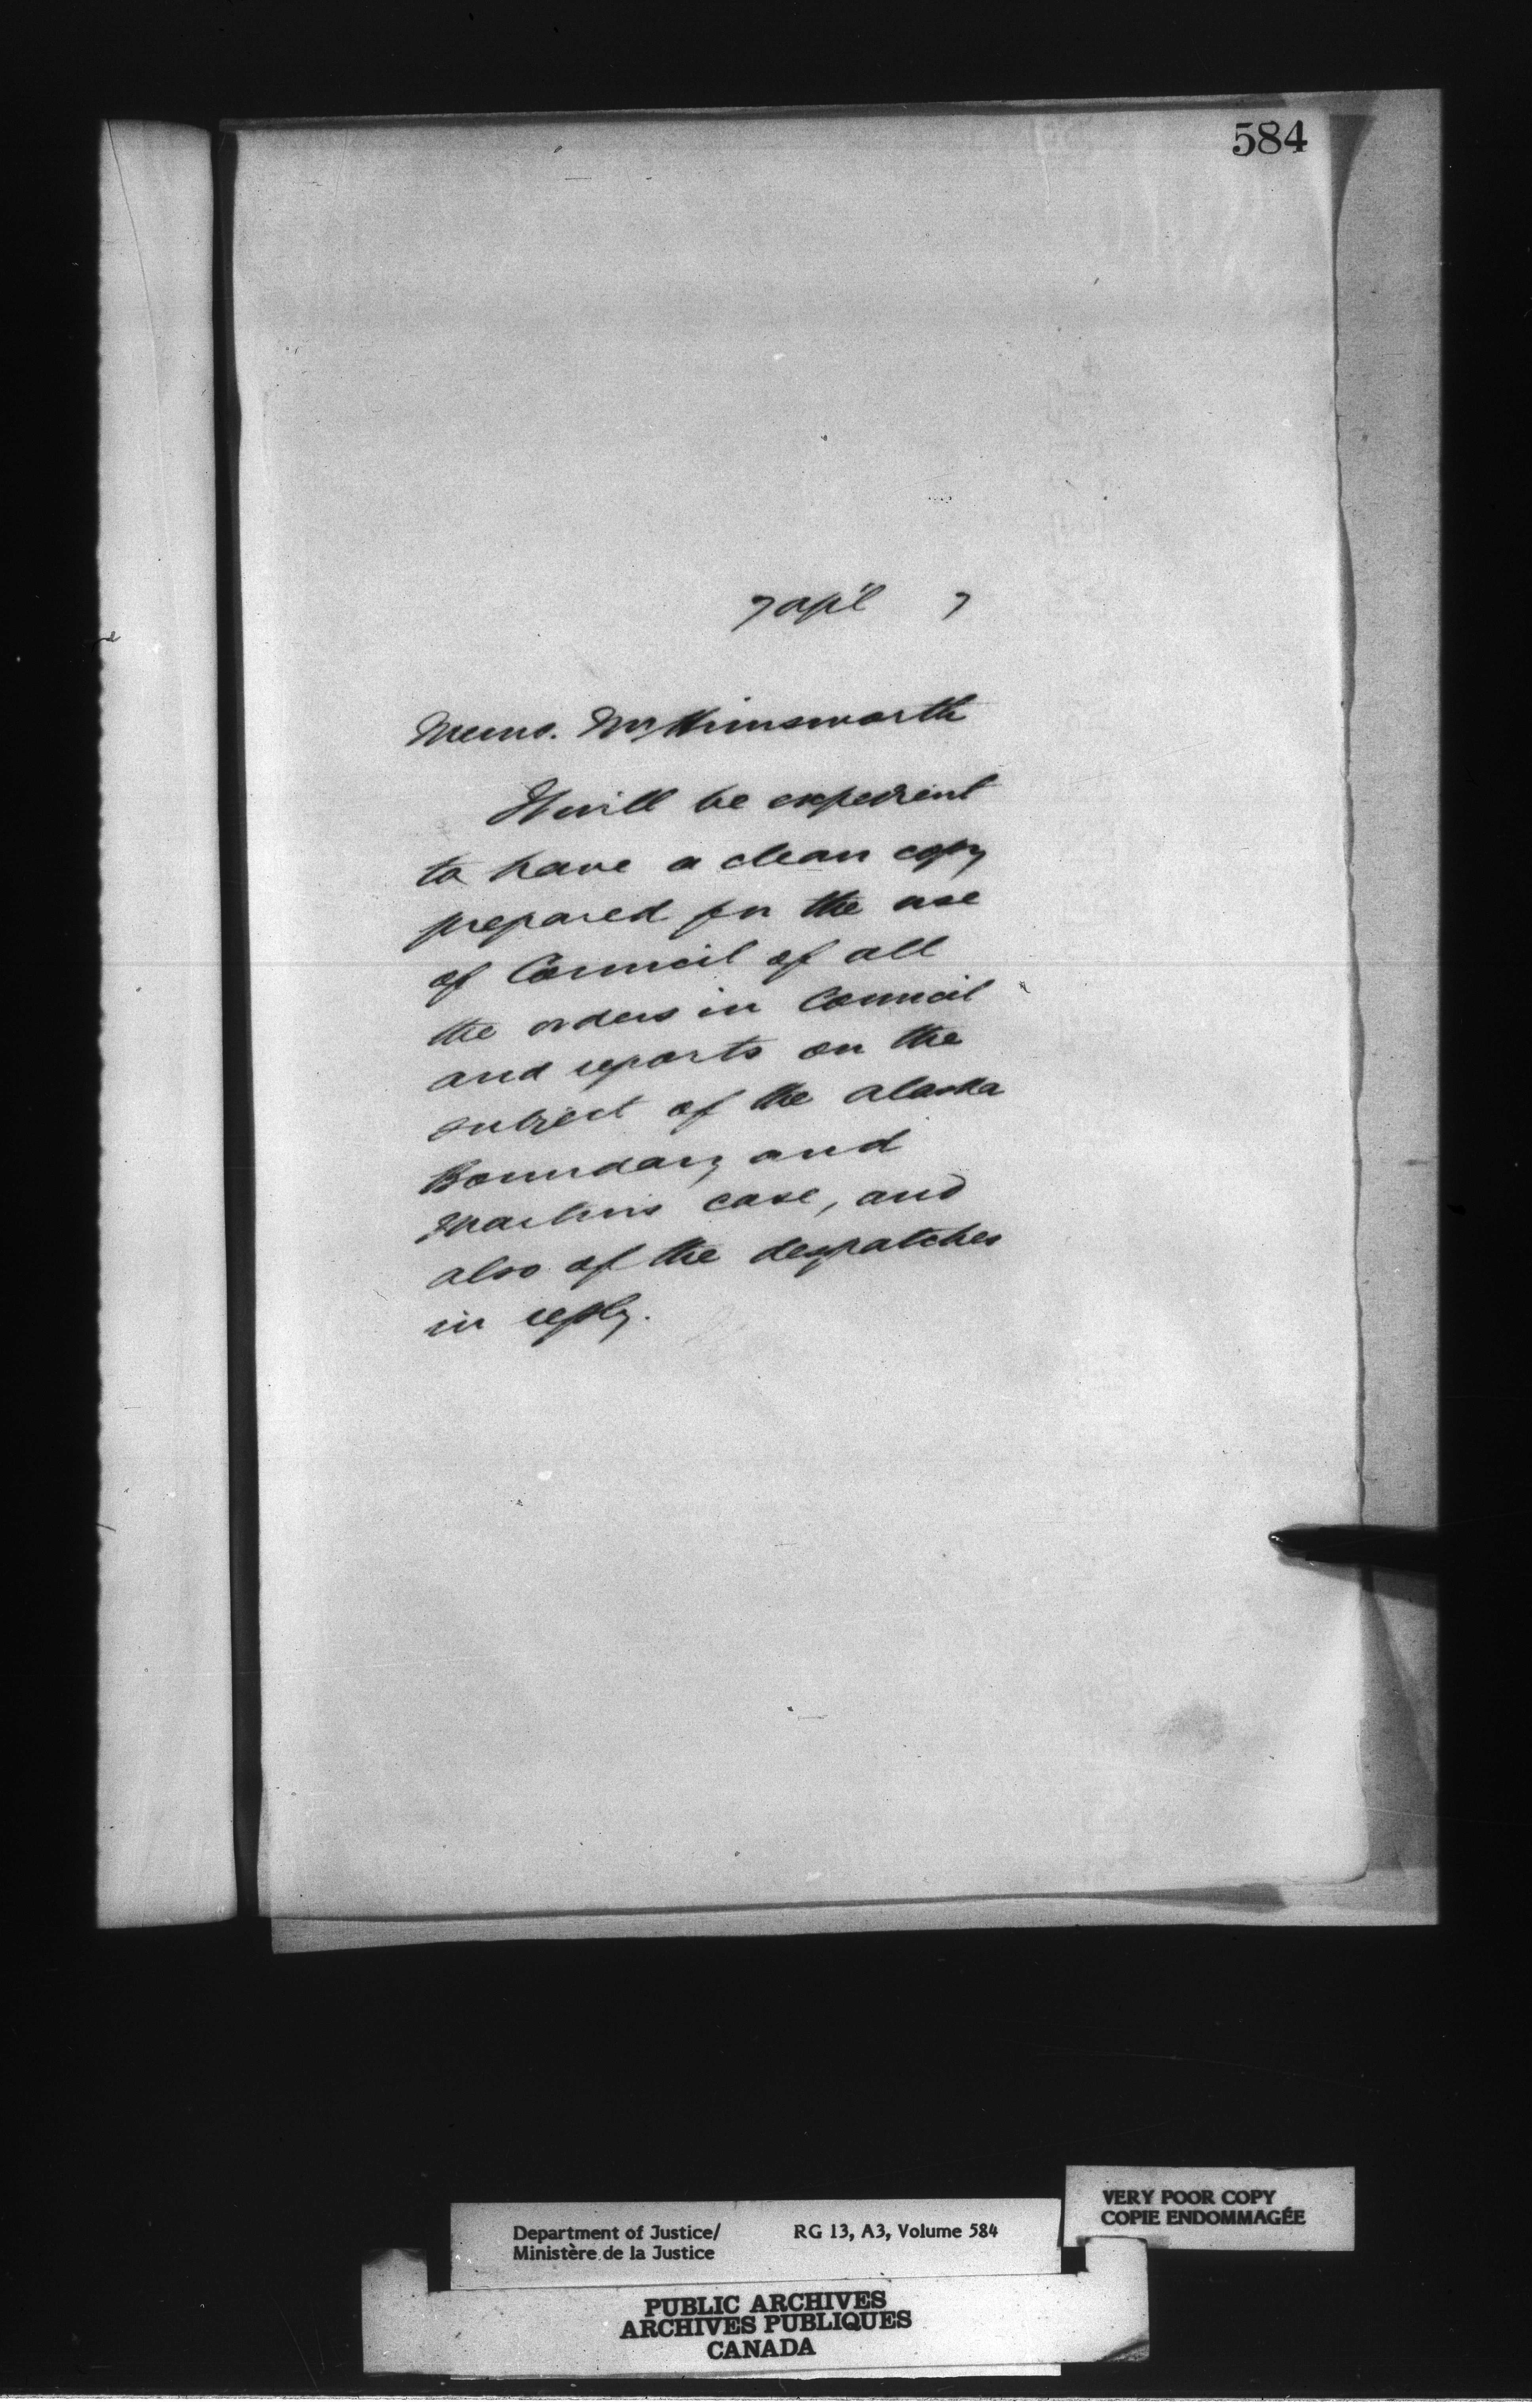 584
7 apl 7
Memo. Mr Himsworth
It will be expedient
to have a clean copy
prepared for the use
of Council of all
the orders in Council
and reports on the
subject of the Alaska
Boundary and
Martins case, and
also of the despatches
in reply.
VERY POOR COPY
COPIE ENDOMMAGÉE
Department of Justice/ RG 13, A3, Volume 584
Ministère de la Justice
PUBLIC ARCHIVES
ARCHIVES PUBLIQUES
CANADA